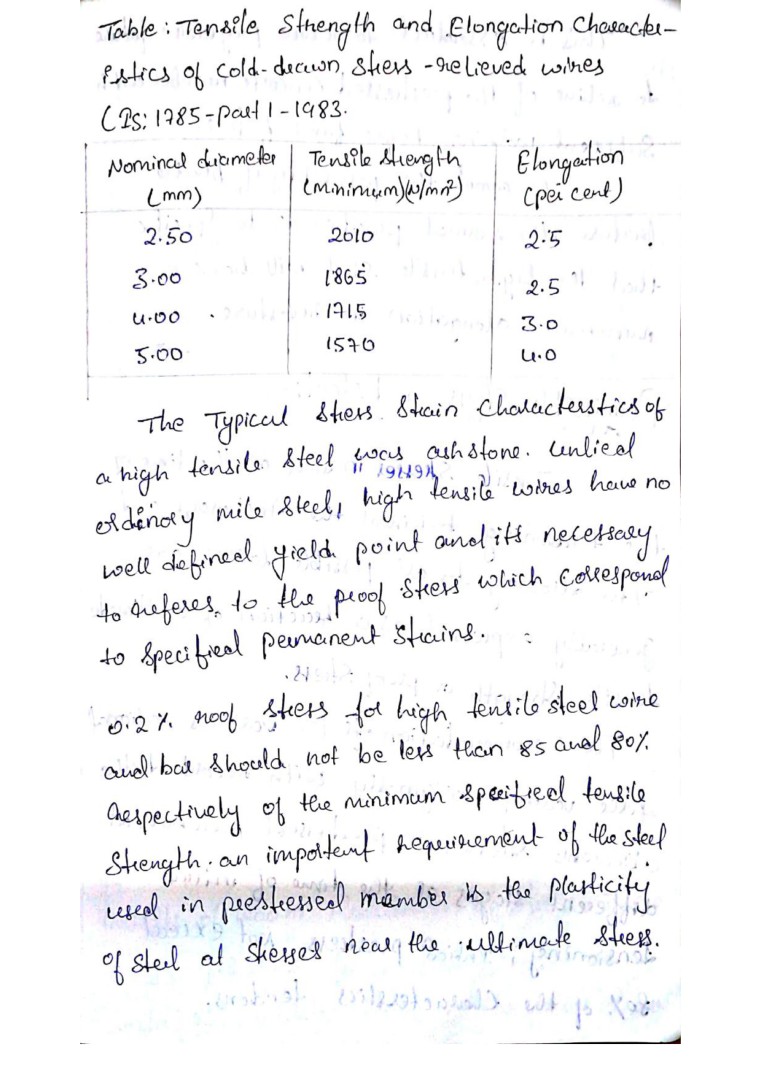 Table: Tensile Strength and Elongation Character-
istics of cold-drawn, stress-relieved wires
(IS: 1785-part 1-1983.
Nominal diameter (mm) Tensile strength (Minimum) (N/mm²) Elongation (per cent)
2.50 2010 2.5
3.00 1865 2.5
4.00 1715 3.0
5.00 1570 4.0
The Typical stress strain characterstics of
a high tensile steel was ashstone. unlied
ordinory mile steel, high tensile wires have no
well defined yield point and its necessary
to referes to the proof stress which correspond
to specified permanent strains.
0.2% roof stress for high tensile steel wire
and bar should not be less than 85 and 80%
respectively of the minimum specified tensile
strength. an important requirement of the steel
used in prestressed member is the plasticity
of steel at stresses near the ultimate stress.